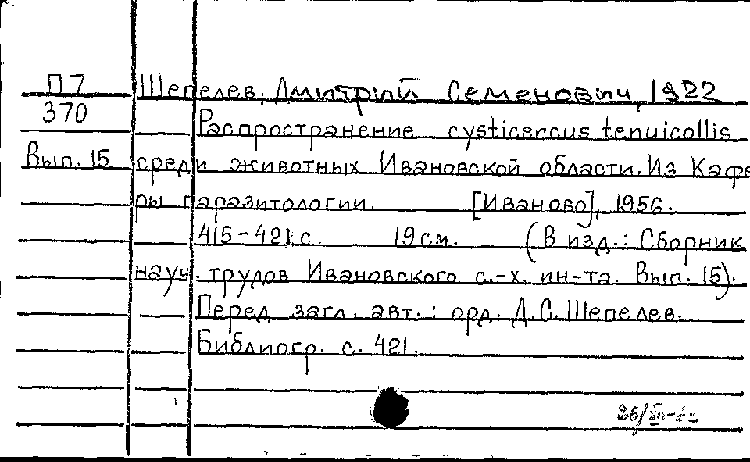 П7 Шепелев, Дмитрий Семенович, 1922
370 Распространение cysticercus tenuicollis
Вып. 15 среди животных Ивановской области. Из Кафе
ры паразитологии. [Иваново], 1956.
415-421 с. 19 см. (В изд.: Сборник
науч. трудов Ивановского с.-х. ин-та. Вып. 15).
Перед загл. авт.: орд. Д.С. Шепелев.
Библиогр. с. 421.